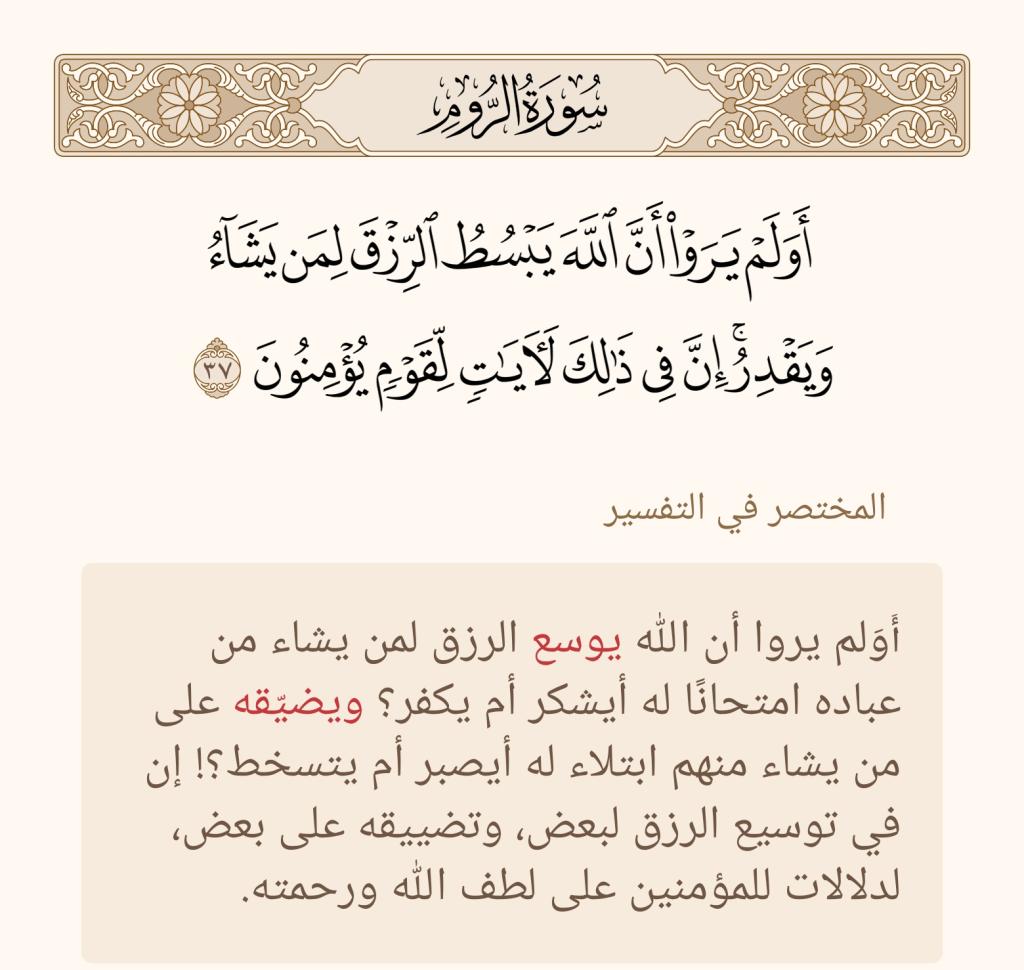 سُورَةُ الرُّومِ
أَوَلَمۡ يَرَوۡاْ أَنَّ ٱللَّهَ يَبۡسُطُ ٱلرِّزۡقَ لِمَن يَشَآءُ
وَيَقۡدِرُۚ إِنَّ فِي ذَٰلِكَ لَأٓيَٰتٖ لِّقَوۡمٖ يُؤۡمِنُونَ ٣٧
المختصر في التفسير
أَوَلم يروا أن الله يوسع الرزق لمن يشاء من
عباده امتحانًا له أيشكر أم يكفر؟ ويضيّقه على
من يشاء منهم ابتلاء له أيصبر أم يتسخط؟! إن
في توسيع الرزق لبعض، وتضييقه على بعض،
لدلالات للمؤمنين على لطف الله ورحمته.